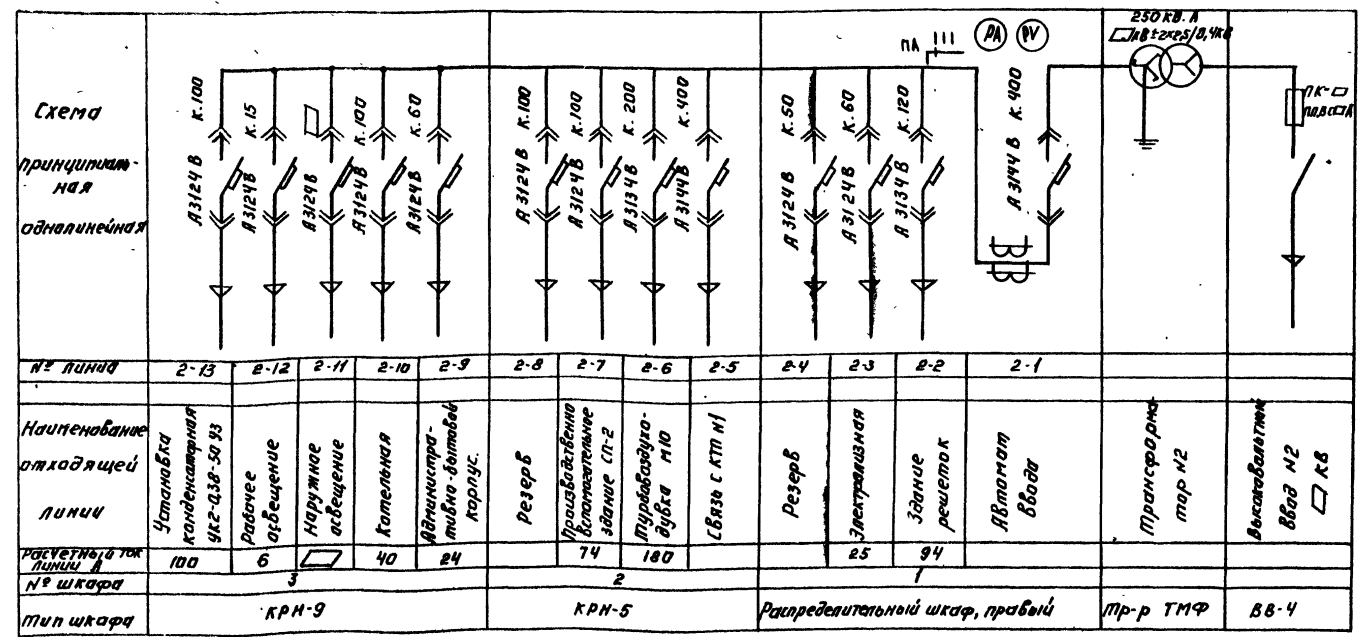 Схема
принципиаль-
ная
однолинейная
к.100
А3124В
к.15
А3124В
А3124В
к.100
А3124В
к.60
А3124В
к.100
А3124В
к.100
А3124В
к.200
А3134В
к.400
А3144В
к.50
А3124В
к.60
А3124В
к.120
А3134В
ПА
РА
PV
к.400
А3144В
250 кВ.А
кВ±2х2,5/0,4кВ
ПК-
№ линии
2-13
2-12
2-11
2-10
2-9
2-8
2-7
2-6
2-5
2-4
2-3
2-2
2-1
Наименование
отходящей
линии
Установка
конденсаторная
УК2-0,38-50 У3
Рабочее
освещение
Наружное
освещение
Котельная
Администра-
тивно-бытовой
корпус.
Резерв
Производственно
вспомогательное
здание СП-2
Турбовоздухо-
дувка М10
Связь с КТП №1
Резерв
Электролизная
Здание
решеток
Автомат
ввода
Трансформа-
тор №2
Высоковольтный
ввод №2
кВ
Расчетный ток
линии А
100
6
40
24
74
180
25
94
№ шкафа
3
2
1
Тип шкафа
КРН-9
КРН-5
Распределительный шкаф, правый
Тр-р ТМФ
ВВ-4